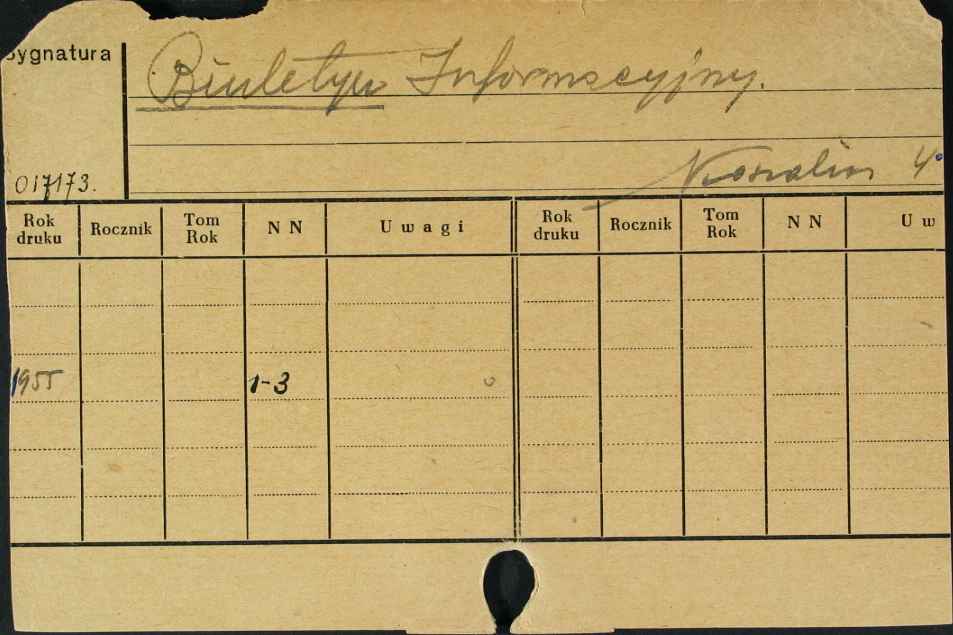 Sygnatura
Biuletyn Informacyjny.
Koszalin 4°
017173.
Rok druku Rocznik Tom Rok N N Uwagi Rok druku Rocznik Tom Rok N N Uw
1955 1-3